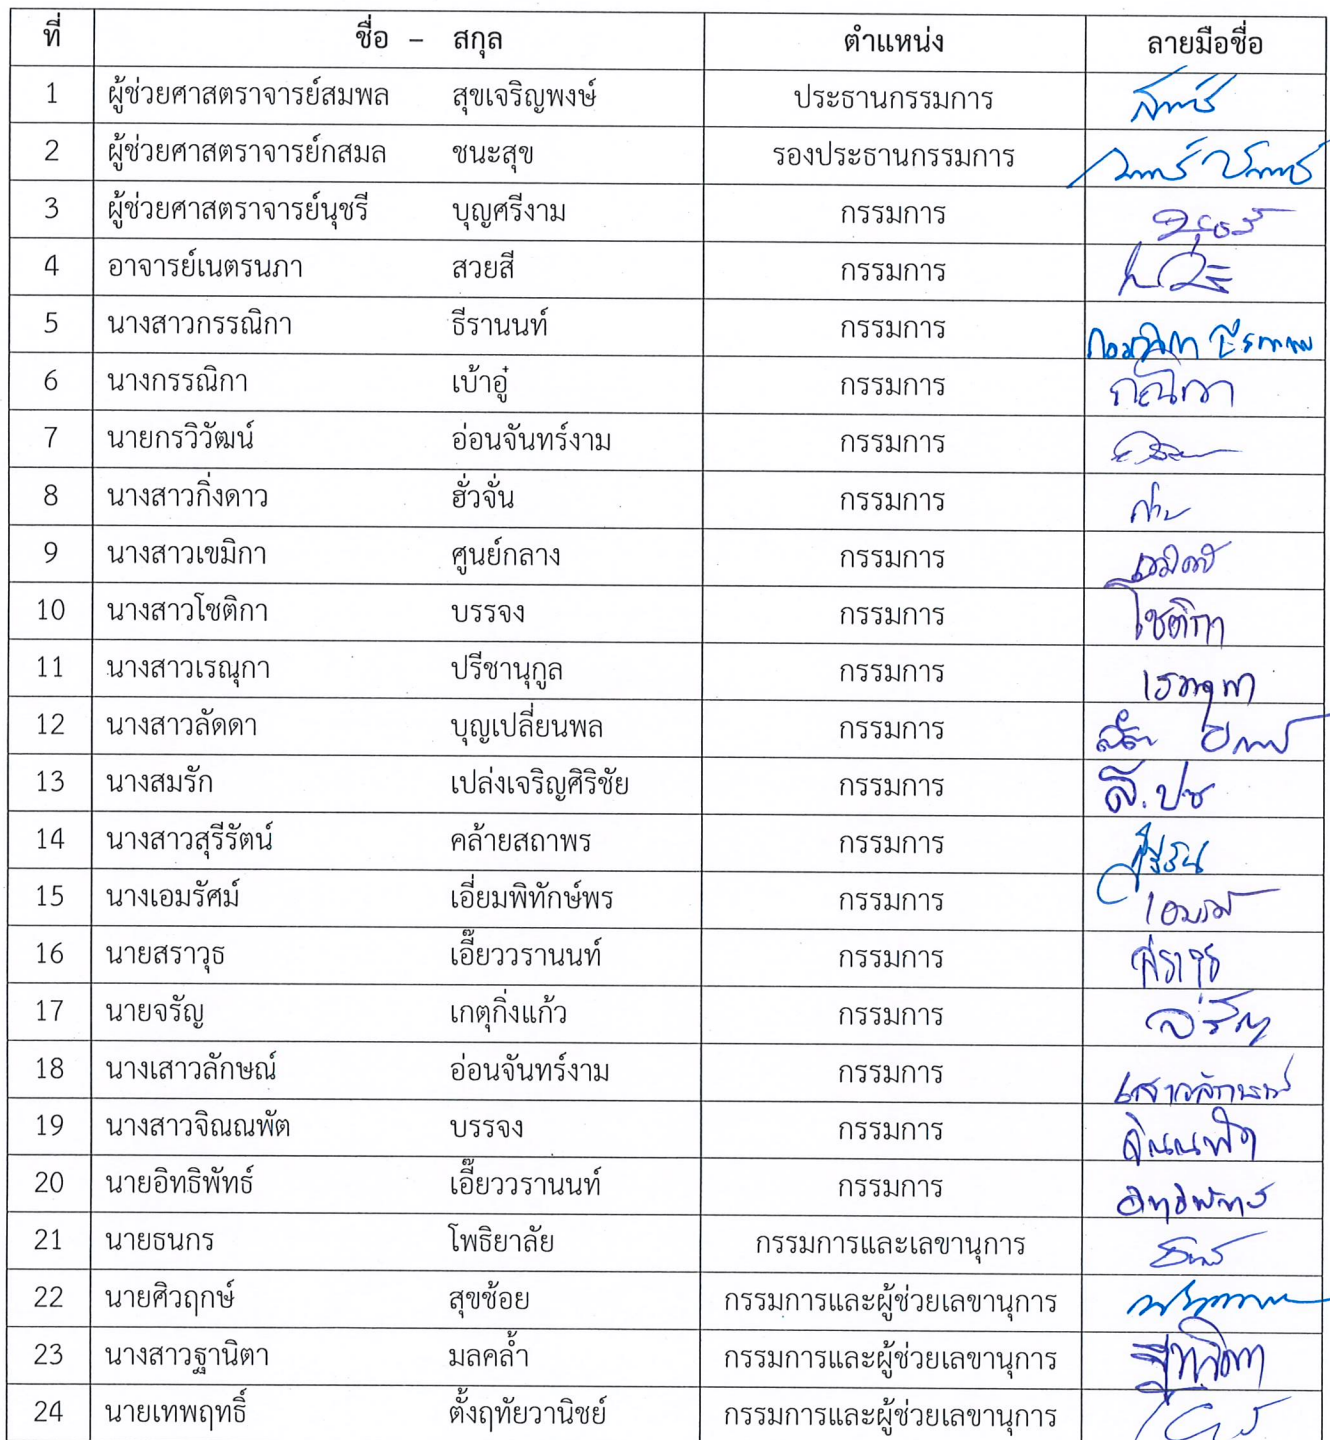 ที่ ชื่อ - สกุล ตำแหน่ง ลายมือชื่อ
1 ผู้ช่วยศาสตราจารย์สมพล สุขเจริญพงษ์ ประธานกรรมการ
2 ผู้ช่วยศาสตราจารย์กสมล ชนะสุข รองประธานกรรมการ
3 ผู้ช่วยศาสตราจารย์นุชรี บุญศรีงาม กรรมการ
4 อาจารย์เนตรนภา สวยสี กรรมการ
5 นางสาวกรรณิกา ธีรานนท์ กรรมการ
6 นางกรรณิกา เบ้าอู๋ กรรมการ
7 นายกรวิวัฒน์ อ่อนจันทร์งาม กรรมการ
8 นางสาวกิ่งดาว ฮั่วจั่น กรรมการ
9 นางสาวเขมิกา ศูนย์กลาง กรรมการ
10 นางสาวโชติกา บรรจง กรรมการ โชติกา
11 นางสาวเรณุกา ปรีชานุกูล กรรมการ
12 นางสาวลัดดา บุญเปลี่ยนพล กรรมการ
13 นางสมรัก เปล่งเจริญศิริชัย กรรมการ
14 นางสาวสุรีรัตน์ คล้ายสถาพร กรรมการ
15 นางเอมรัศม์ เอี่ยมพิทักษ์พร กรรมการ
16 นายสราวุธ เอี๊ยววรานนท์ กรรมการ สราวุธ
17 นายจรัญ เกตุกิ่งแก้ว กรรมการ จรัญ
18 นางเสาวลักษณ์ อ่อนจันทร์งาม กรรมการ เสาวลักษณ์
19 นางสาวจิณณพัต บรรจง กรรมการ จิณณพัต
20 นายอิทธิพัทธ์ เอี๊ยววรานนท์ กรรมการ อิทธิพัทธ์
21 นายธนกร โพธิยาลัย กรรมการและเลขานุการ
22 นายศิวฤกษ์ สุขช้อย กรรมการและผู้ช่วยเลขานุการ
23 นางสาวฐานิตา มลคล้ำ กรรมการและผู้ช่วยเลขานุการ
24 นายเทพฤทธิ์ ตั้งฤทัยวานิชย์ กรรมการและผู้ช่วยเลขานุการ